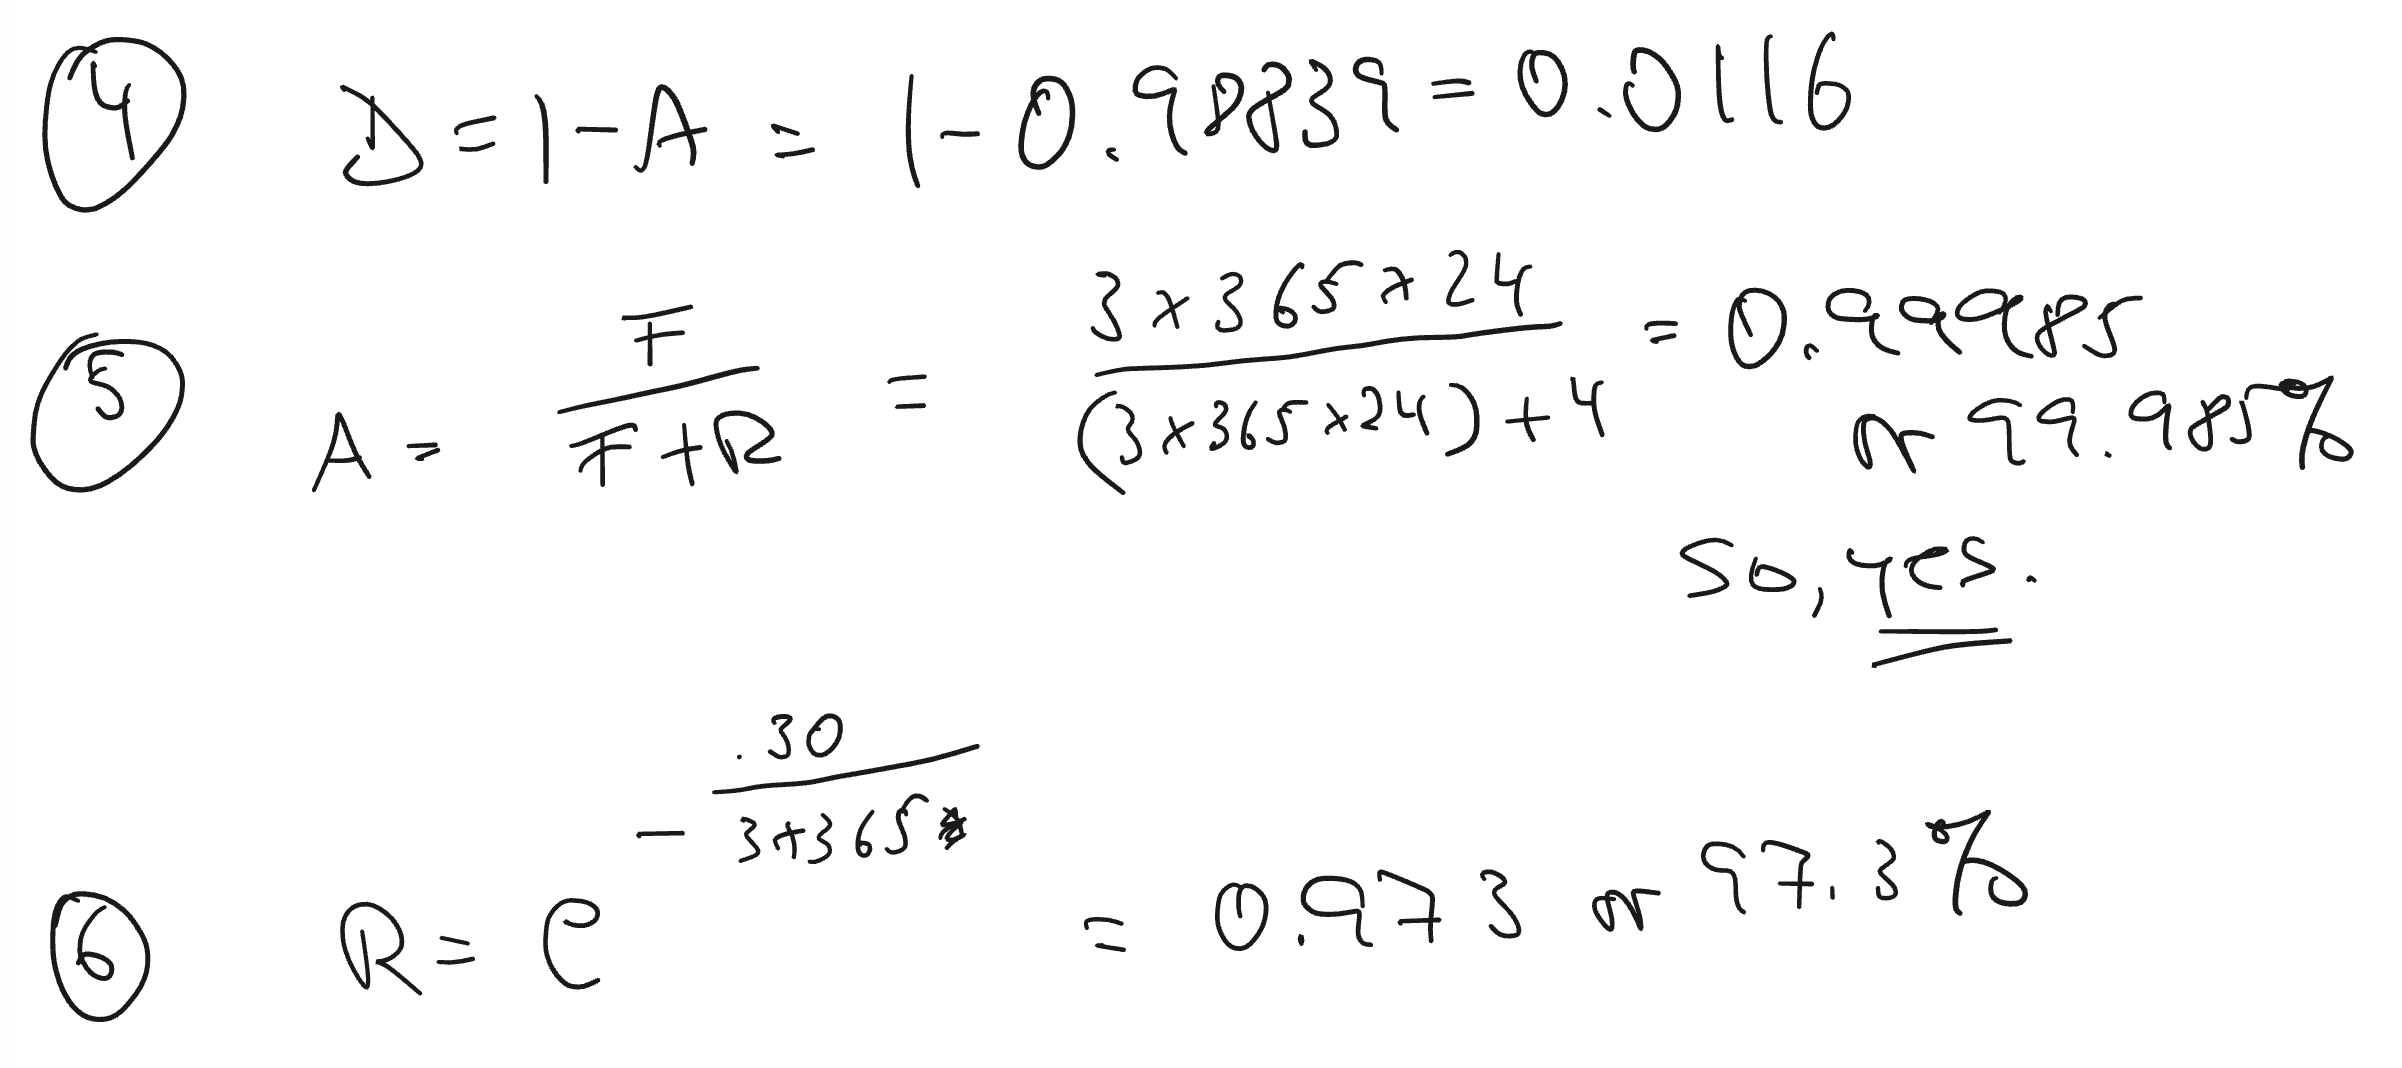 ④ D = 1 - A = 1 - 0.98839 = 0.0116
⑤ A = F / (F + R) = 3 x 365 x 24 / ((3 x 365 x 24) + 4) = 0.99985
or 99.985%
So, yes.
⑥ R = e^(- .30 / 3x365) = 0.973 or 97.3%